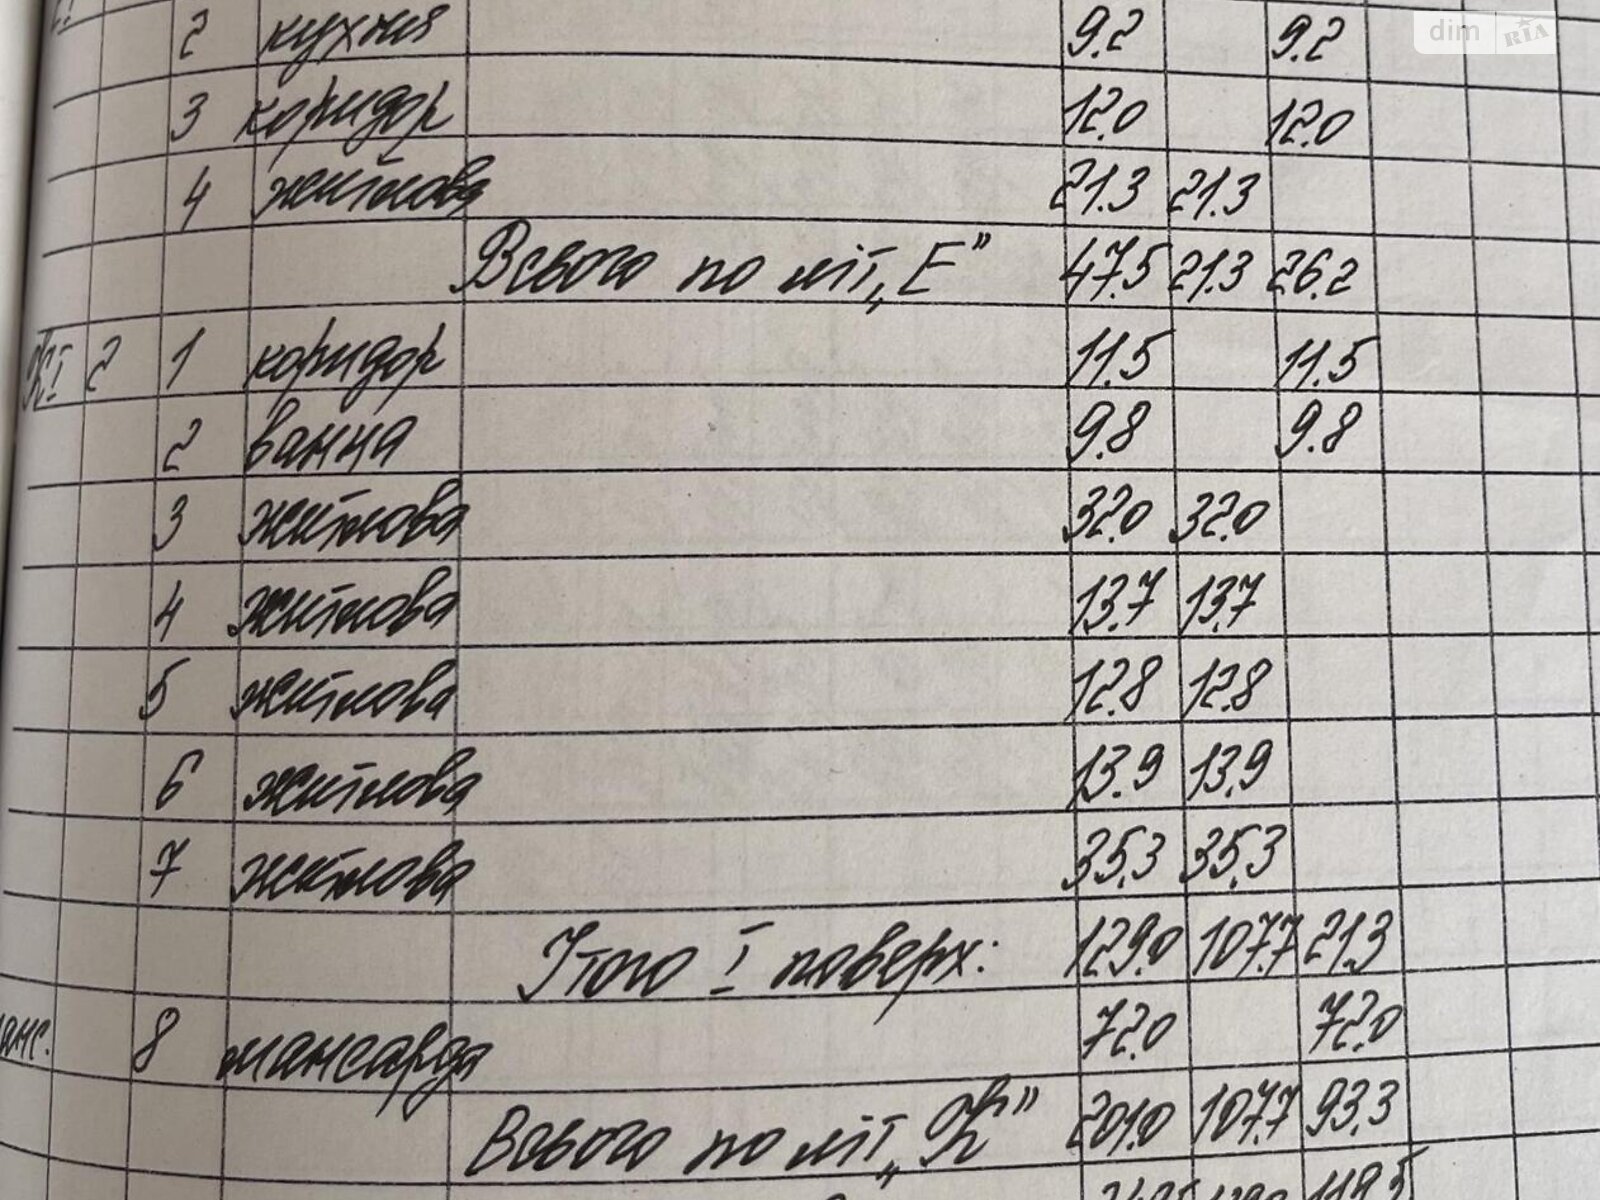 dim RIA
2 кухня 9.2 9.2
3 коридор 12.0 12.0
4 житлова 21.3 21.3
Всього по літ „Е" 47.5 21.3 26.2
2 1 коридор 11.5 11.5
2 ванна 9.8 9.8
3 житлова 32.0 32.0
4 житлова 13.7 13.7
5 житлова 12.8 12.8
6 житлова 13.9 13.9
7 житлова 35.3 35.3
Ітого І поверх: 129.0 107.7 21.3
8 мансарда 72.0 72.0
Всього по літ „Ж" 201.0 107.7 93.3
119.5